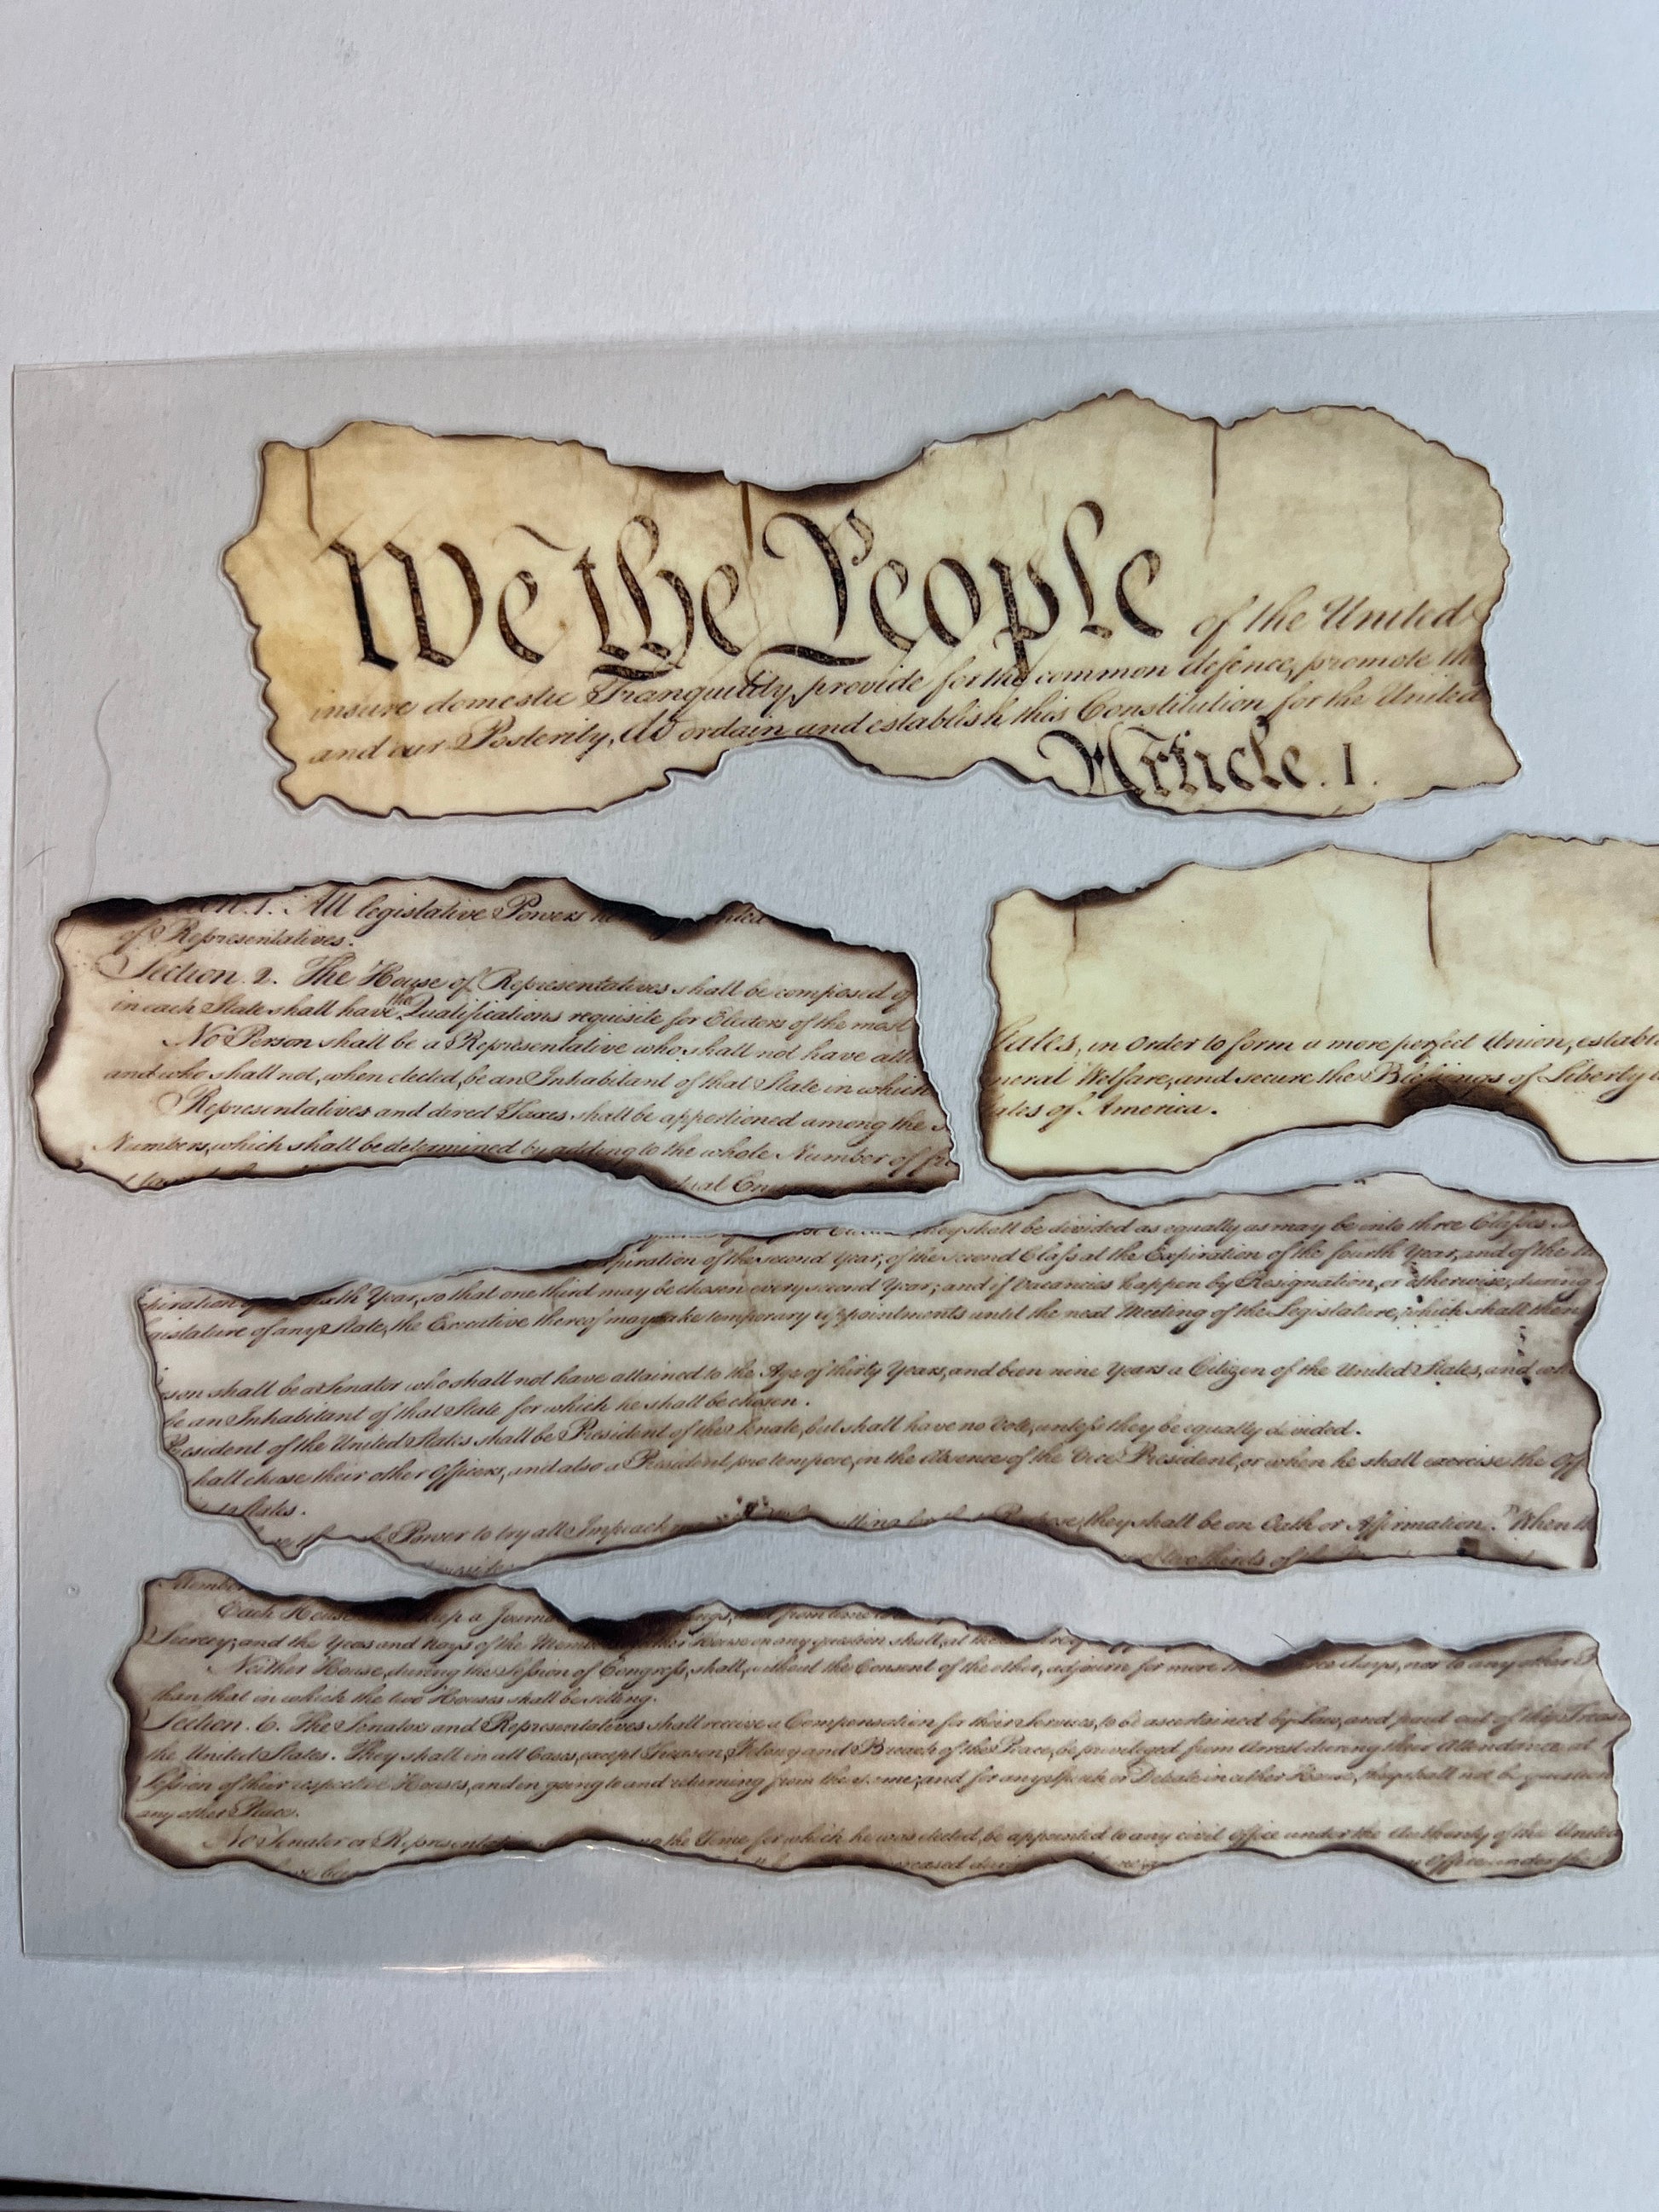 We the People of the United
insure domestic Tranquility, provide for the common defence, promote the
and our Posterity, do ordain and establish this Constitution for the United
Article. I.
n. 1. All legislative Powers
of Representatives.
Section. 2. The House of Representatives shall be composed of
in each State shall have the Qualifications requisite for Electors of the most
No Person shall be a Representative who shall not have att
and who shall not, when elected, be an Inhabitant of that State in which
Representatives and direct Taxes shall be apportioned among the s
Numbers, which shall be determined by adding to the whole Number of fr
tual En
tates, in Order to form a more perfect Union, establ
neral Welfare, and secure the Blessings of Liberty
ates of America.
they shall be divided as equally as may be into three Classes.
piration of the second Year, of the second Class at the Expiration of the fourth Year, and of the
piration sixth Year, so that one third may be chosen every second Year; and if Vacancies happen by Resignation, or otherwise, during
gislature of any State, the Executive thereof may make temporary Appointments until the next Meeting of the Legislature, which shall then
rson shall be a Senator who shall not have attained to the Age of thirty Years, and been nine Years a Citizen of the United States, and wh
be an Inhabitant of that State for which he shall be chosen.
President of the United States shall be President of the Senate, but shall have no Vote, unless they be equally divided.
hall chuse their other Officers, and also a President pro tempore, in the Absence of the Vice President, or when he shall exercise the Off
States.
Power to try all Impeach sitting for that Purpose, they shall be on Oath or Affirmation. When th
two thirds of
Member
Each House keep a Journ ings, and from time to
Secrecy; and the Yeas and Nays of the Members of either House on any question shall, at the
Neither House, during the Session of Congress, shall, without the Consent of the other, adjourn for more than three days, nor to any other P
than that in which the two Houses shall be sitting.
Section. 6. The Senators and Representatives shall receive a Compensation for their Services, to be ascertained by Law, and paid out of the Treas
the United States. They shall in all Cases, except Treason, Felony and Breach of the Peace, be privileged from Arrest during their Attendance at
Session of their respective Houses, and in going to and returning from the same; and for any Speech or Debate in either House, they shall not be question
any other Place.
No Senator or Represent the Time for which he was elected, be appointed to any civil Office under the Authority of the United
creased during Office under the